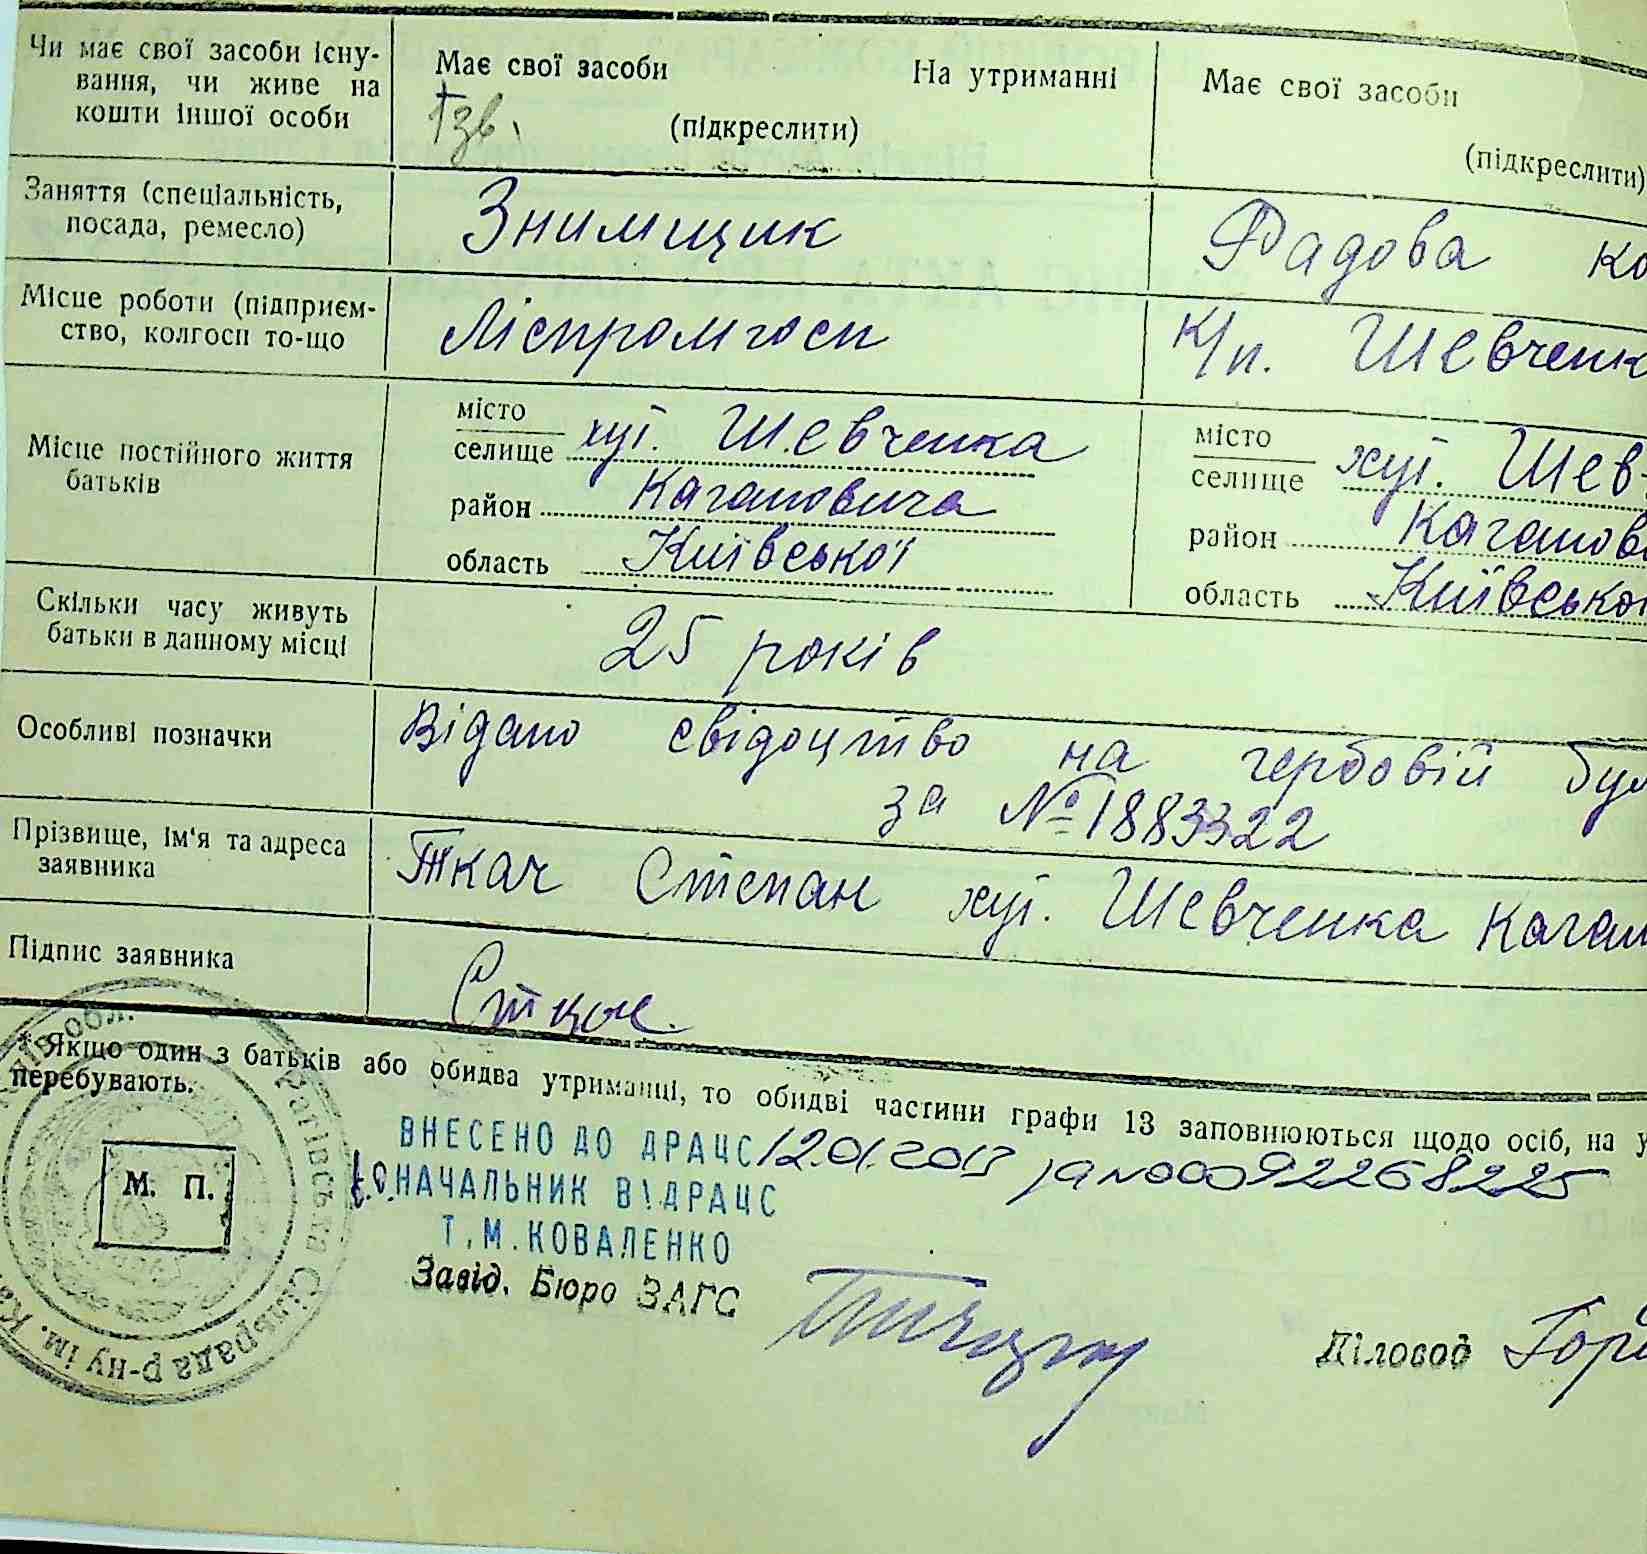 Чи має свої засоби існу-
вання, чи живе на
кошти іншої особи
Має свої засоби На утриманні
(підкреслити)
Має свої засоби
(підкреслити)
Заняття (спеціальність,
посада, ремесло)
Знимщик
Радова ко
Місце роботи (підприєм-
ство, колгосп то-що
Ліспромгосп
к/п. Шевченк
Місце постійного життя
батьків
місто
селище хут. Шевченка
район Кагановича
область Київської
місто
селище хут. Шев
район Каганов
область Київської
Скільки часу живуть
батьки в данному місці
25 років
Особливі позначки
Відано свідоцтво на гербовій бум
за №1883322
Прізвище, ім'я та адреса
заявника
Ткач Степан хут. Шевченка Каган
Підпис заявника
* Якщо один з батьків або обидва утриманці, то обидві частини графи 13 заповнюються щодо осіб, на у
перебувають.
М. П.
ВНЕСЕНО ДО ДРАЦС 12.01.2013 за №00092268225
т.о. НАЧАЛЬНИК ВІДРАЦС
Т.М.КОВАЛЕНКО
Завід. Бюро ЗАГС
Діловод